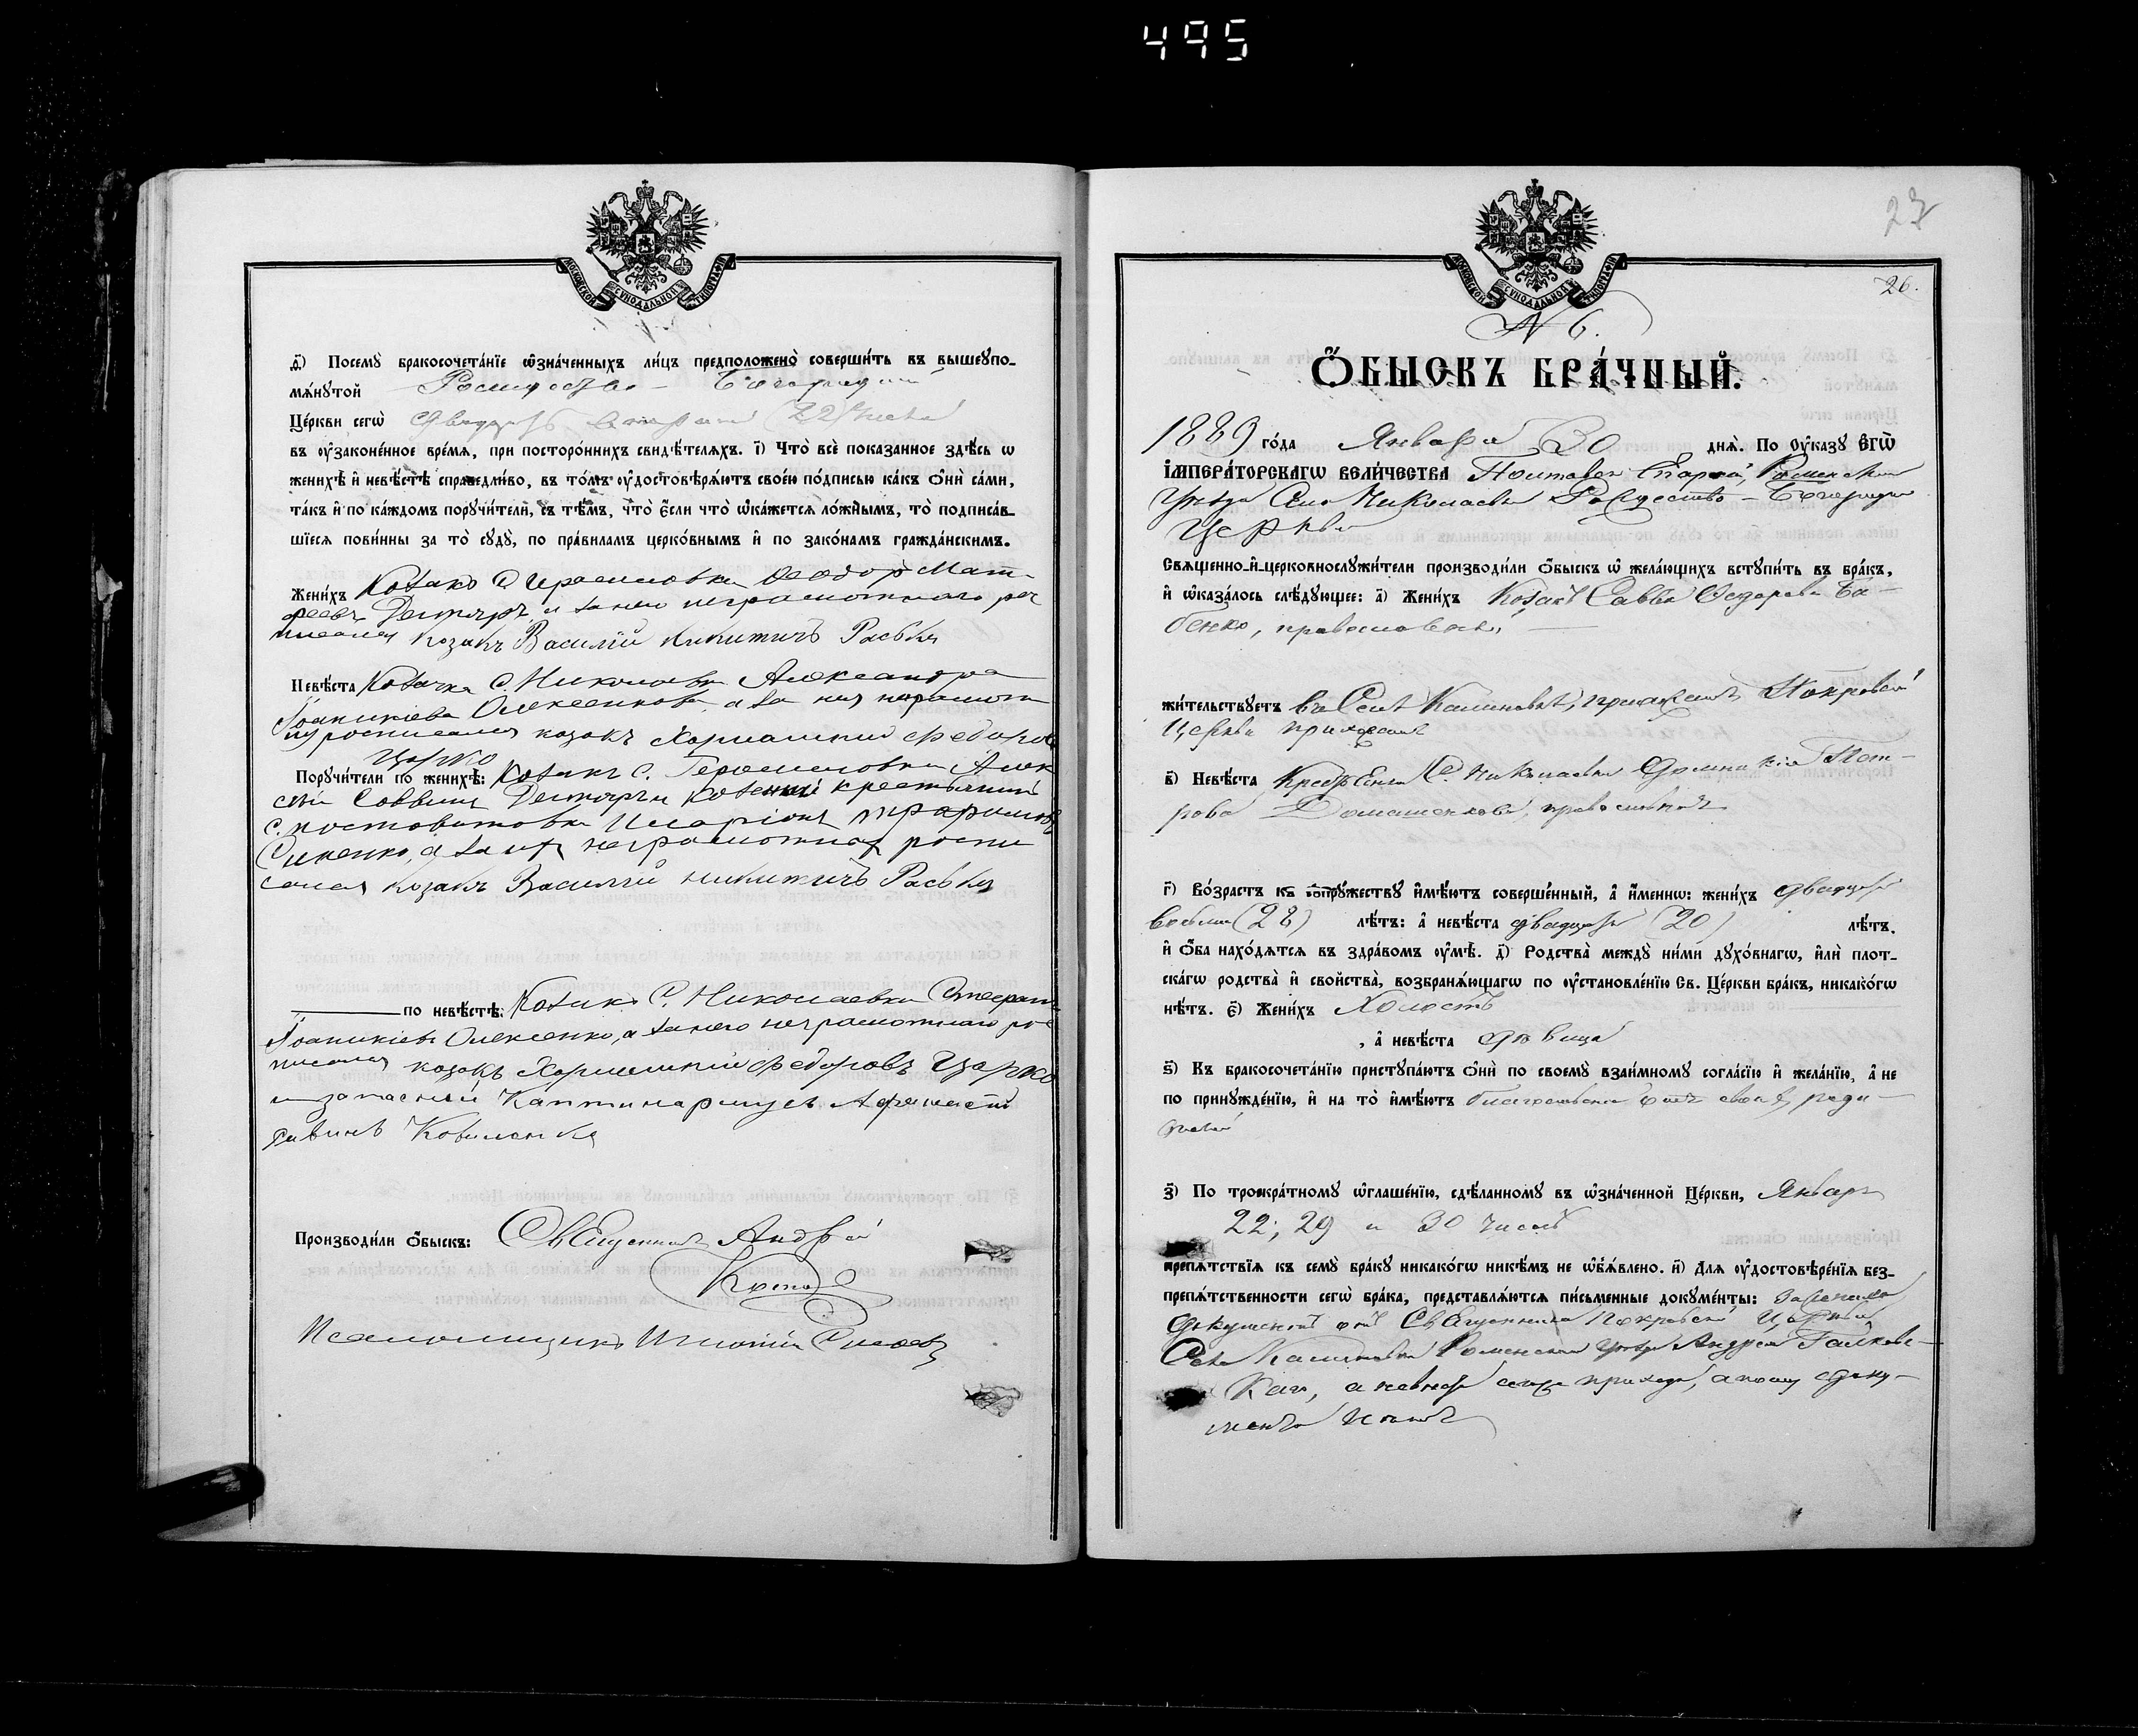 495
МОСКОВСКОЙ СѴНОДАЛЬНОЙ ТИПОГРАФІИ
д҃) Посемꙋ̀ бракосочета́нїе ѡ҆зна́ченныхъ ли́цъ предположено̀ соверши́ть въ вышеꙋпо-
мѧ́нꙋтой Рождество – Богородичной
Це́ркви сегѡ̀ двадцать втораго (22) числа
въ ᲂу҆зако́ненное вре́мѧ, при посторо́ннихъ свидѣ́телѧхъ. і҃) Что̀ всѐ пока́занное здѣ́сь ѡ
женихѣ̀ и҆ невѣ́стѣ справедли́во, въ то́мъ ᲂу҆достовѣрѧ́ютъ свое́ю по́дписью ка́къ ѻ҆нѝ са́ми,
та́къ и҆ по ка́ждомъ порꙋчи́тели, съ тѣ́мъ, что̀ є҆́сли что̀ ѡ҆ка́жется ло́жнымъ, то̀ подписа́в-
шїесѧ пови́нны за то̀ сꙋдꙋ̀, по пра́виламъ церко́внымъ и҆ по зако́намъ гражда́нскимъ.
Жени́хъ Козакъ с. Герасимовки Ѳеодоръ Мат-
феевъ Дегтяръ, и за него неграмотнаго рос
писался козакъ Василій Никитичъ Расько
Невѣ́ста Козачка с. Николаевки Александра
Іоаникіева Олексенкова, а за нея неграмот
ну росписался козакъ Харлампій Федоров
Царко
Порꙋчи́тели по женихѣ̀: Козакъ с. Герасимовки Алек
сѣй Саввинъ Дегтяръ и крестьянинъ
с. Иларіонъ
а за ихъ неграмотныхъ роспи
сался козакъ Василій Никитичъ Расько
по невѣ́стѣ: Козакъ с. Николаевки Стефанъ
Іоаникіевъ Олексенко, а за него неграмотнаго рос
писался козакъ Харлампій Федоровъ Царко
и запасный Каптинармусъ Афанасій
Саввинъ Коваленко
Производи́ли ѻ҆́быскъ: Священникъ Андрей
Псаломщикъ Игнатій
27
26.
МОСКОВСКОЙ СѴНОДАЛЬНОЙ ТИПОГРАФІИ
N 6.
Ѻ҆́БЫСКЪ БРА́ЧНЫЙ.
1889 го́да Января 30 днѧ̀. По ᲂу҆ка́зꙋ Є҆гѡ̀
І҆МПЕРА́ТОРСКАГѠ ВЕЛИ́ЧЕСТВА Полтавской Епархіи, Роменскаго
уѣзда Села Николаевки Рождество – Богородичной
Церкви
Свѧще́нно-и҆-церковнослꙋжи́тели производи́ли ѻ҆́быскъ ѡ҆ жела́ющихъ встꙋпи́ть въ бра́къ,
и҆ ѡ҆каза́лось слѣ́дꙋющее: а҃) Жени́хъ Козакъ Савва Федоровъ Ба-
бенко, православный
жи́тельствꙋетъ въ Селѣ Калиновкѣ, прихожанъ Покровской
Церкви прихода
в҃) Невѣ́ста С. Николаевки Домникія Пет-
рова Домашенкова, православной
г҃) Во́зрастъ къ сꙋпрꙋ́жествꙋ и҆мѣ́ютъ соверше́нный, а҆ и҆́менно: жени́хъ двадцать
восьми (28) лѣ́тъ: а҆ невѣ́ста двадцать (20) лѣ́тъ.
и҆ ѻ҆́ба нахо́дѧтсѧ въ здра́вомъ ᲂу҆мѣ̀. д҃) Родства̀ междꙋ̀ ни́ми дꙋхо́внагѡ, и҆лѝ плот-
ска́гѡ родства̀ и҆ сво́йства̀, возбранѧ́ющагѡ по ᲂу҆становле́нїю Св. Це́ркви бра́къ, никако́гѡ
нѣ́тъ. є҃) Жени́хъ Холостъ
, а҆ невѣ́ста дѣвица
ѕ҃) Къ бракосочета́нїю пристꙋпа́ютъ ѻ҆нѝ по своемꙋ̀ взаи́мномꙋ согла́сїю и҆ жела́нїю, а҆ не
по принꙋжде́нїю, и҆ на то̀ и҆мѣ́ютъ благословеніе отъ своихъ роди-
телей
з҃) По троекра́тномꙋ ѡ҆глаше́нїю, сдѣ́ланномꙋ въ ѡ҆зна́ченной Це́ркви, Января
22; 29 и 30 числѣ
препѧ́тствїѧ къ семꙋ̀ бра́кꙋ никако́гѡ никѣ́мъ не ѡ҆б̾ѧ́влено. и҃) Для ᲂу҆достовѣре́нїѧ без-
препѧ́тственности сегѡ̀ бра́ка, представлѧ́ютсѧ пи́сьменные докꙋме́нты:
документъ отъ Священника Покровской Церкви
Села Калиновки Роменскаго уѣзда Андрея Галковс-
каго, а невѣста сего прихода, а потому доку-
мента нѣтъ